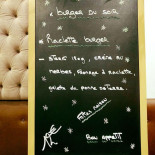 Burger du soir
Raclette burger
Steak 180g, crème au
herbes, fromage à raclette,
galette de pomme de terre.
Bon appétit